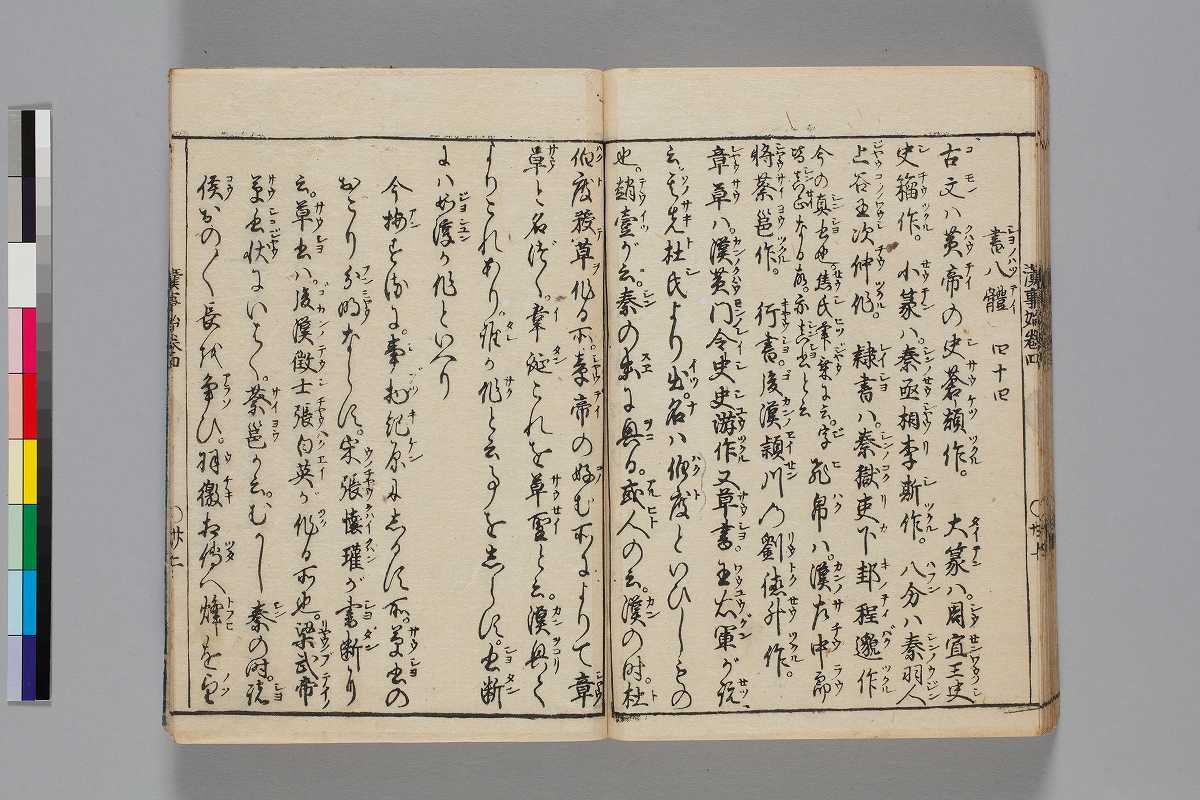 書八體　四十四
古文ハ黄帝の史蒼頡作。　大篆ハ周宣王史
史籀作。　小篆ハ。秦丞相李斯作。　八分ハ秦羽人
上谷王次仲作。　隷書ハ。秦獄吏下邽程邈作
今の真書也。焦氏筆乗に云。字皆真正なる故。亦真書と云　飛帛ハ。漢左中郎
将蔡邕作。　行書。後漢頴川の劉徳升作。
章草ハ。漢黄門令史史游作又草書。王右軍が説、
云。其先杜氏より出。名ハ伯度といひしもの
也。趙壹が云。秦の末に興る。或人の云。漢の時。杜
伯度発草作る所。章帝の好む所によりて章
草と名づく。韋誕これを草聖と云。漢興て
よりこれあり。誰が作と云事をしらず。書断
にハ如淳が作といへり
今按ずるに。事物紀原にしるす所。草書の
おこり分明ならず。宋張懐瓘が書断より
云。草書ハ。後漢徴士張伯英が作る所也。梁武帝
草書状にいはく。蔡邕が云。むかし秦の時。諸
侯おのく長を争ひ。羽檄相傳へ烽を望
漢事始巻四
漢事始巻四　〇廿二